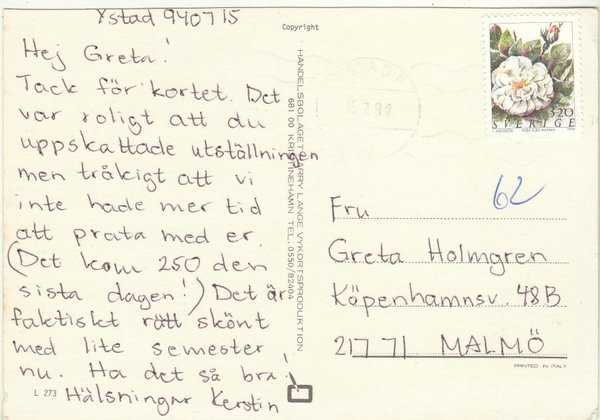 Ystad 940715
Hej Greta!
Tack för kortet. Det
var roligt att du
uppskattade utställningen
men tråkigt att vi
inte hade mer tid
att prata med er.
(Det kom 250 den
sista dagen!) Det är
faktiskt rätt skönt
med lite semester
nu. Ha det så bra!
Hälsningar Kerstin
L 273
Copyright
HANDELSBOLAGET HARRY LANGE VYKORTSPRODUKTION
681 00 KRISTINEHAMN TEL. 0550/82404
15.7.94
3.20
SVERIGE
62
Fru
Greta Holmgren
Köpenhamnsv. 48B
217 71 MALMÖ
PRINTED IN ITALY